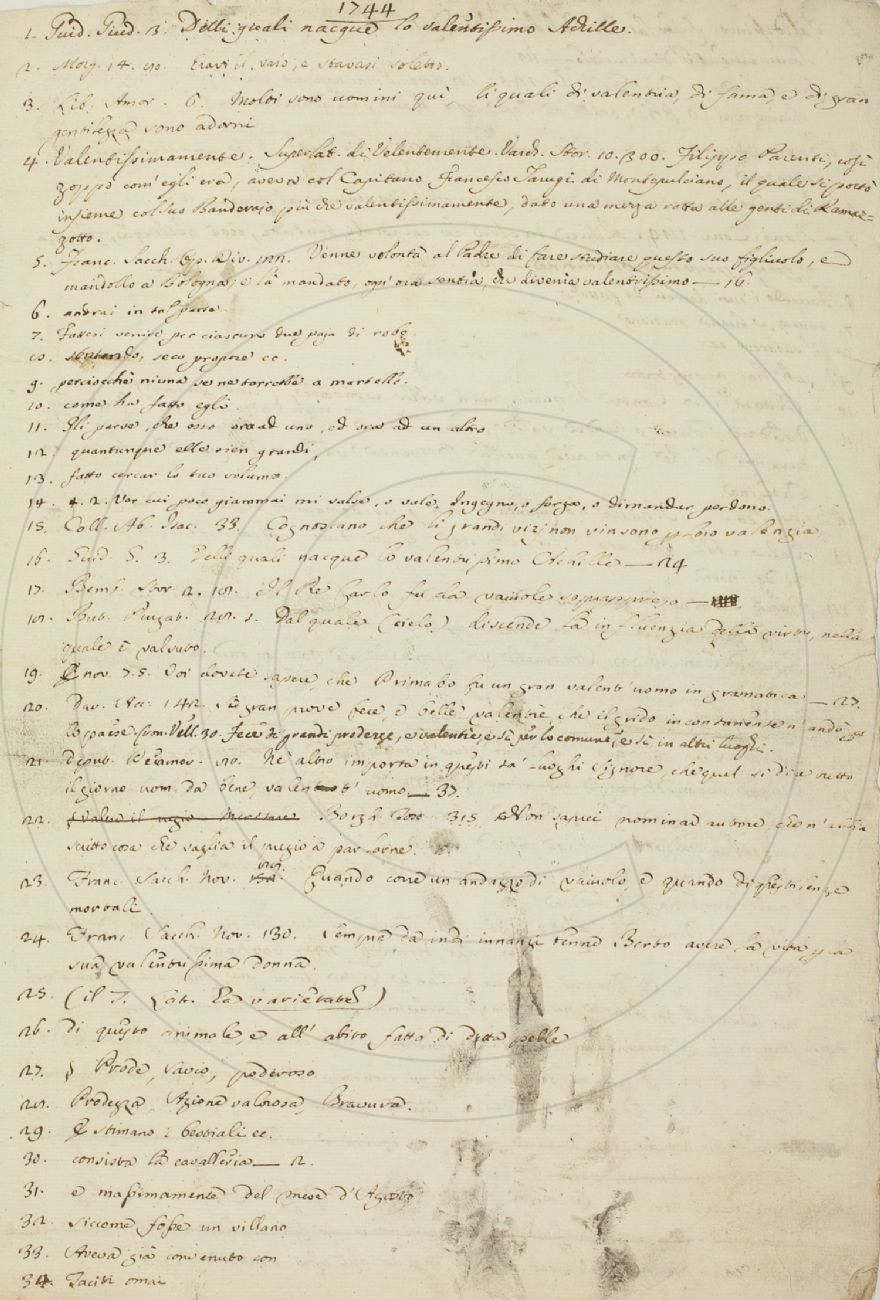 1744
1. Guid. Giud. 3. Delli quali nacque lo valentissimo Achille.
2. Morg. 14. 80. Eravi il vaio, e stavasi soletto.
3. Lib. Amor. 6. Molti sono uomini quì, li quali di valentia, di fama, e di gran
gentilezza sono adorni
4. Valentissimamente. Superlat. di Valentemente. Varch. Stor. 10. 300. Filippo Parenti, così
zoppo com' egli era, aveva col Capitano Francesco Tarugi di Montepulciano, il quale si portò
insieme col suo Banderajo più che valentissimamente, dato una mezza rotta alle genti di Ramaz=
zotto.
5. Franc. Sacch. Op. Div. Venne volontà al Padre di fare studiare questo suo figliuolo, e
mandollo a Bologna, e là mandato, ogn' ora sentia, che divenia valentissimo — 16.
6. andrai in tal parte.
7. Fatteri venire per ciascuno due paja di robe.
8. seco propose ec.
9. perciocchè niuna se ne torrebbe a martello.
10. come ha fatto egli.
11. Gli parve, che esso ora ad uno, ed ora ad un altro
12. quantunque elle sien grandi,
13. fatto cercar lo tuo volume.
14. 4. 2. Ver cui poco giammai mi valse, o vale Ingegno, o forza, o dimandar perdono.
15. Coll. Ab. Isac. 33. Cognosciano, che li grandi vizi non vinsono p loro valenzia
16. Guid. G. 3. Delli quali nacque lo valentissimo Achille — 24
17. Bemb. Stor. 2. 18. Il Re Carlo fu da vaiuole sopappreso —
18. But. Purgat. 28. 1. Dal quale (cielo) discende la influenzia della virtù, nella
quale è valsuto.
19. nov. 75. Voi dovete sapere, che Primasso fu un gran valent' uomo in gramatica — 27.
20. Dav. Acc. 142. Sè gran prove fece, e belle valentie, che il grido incontanente n' andò p
lo paese. Com. Vell. 30. Fece di grandi prodezze, e valentie, e sì per lo comune, e sì in altri luoghi.
21. Deput. Decamer. 80. Nè altro importa in questi sa' luoghi Signore, che quel si dice tutto
il giorno uom da bene, valent' uomo — 37.
22. Borgh. Tosc. 315. Non saprei nominar autore, che n' abbia
scritto cosa che vaglia il pregio a parlarne.
23. Franc. Sacch. Nov. Quando corre un andazzo di vaiuolo, e quando di pestilenze
mortali.
24. Franc. Sacch. Nov. 130. Sempre da indi innanzi tenne Berto avere la vita p la
sua valentissima donna.
25. (il T. Lat. ha varietates)
26. di questo animale, e all' abito fatto di detta pelle
27. § Prode, savio, poderoso
28. Prodezza, Azione valorosa, Bravura.
29. E stimano i bestiali ec.
30. consista la cavalleria — 2.
31. e massimamente del mese d' Agosto
32. siccome fosse un villano
33. Aveva già convenuto con
34. Taciti omai